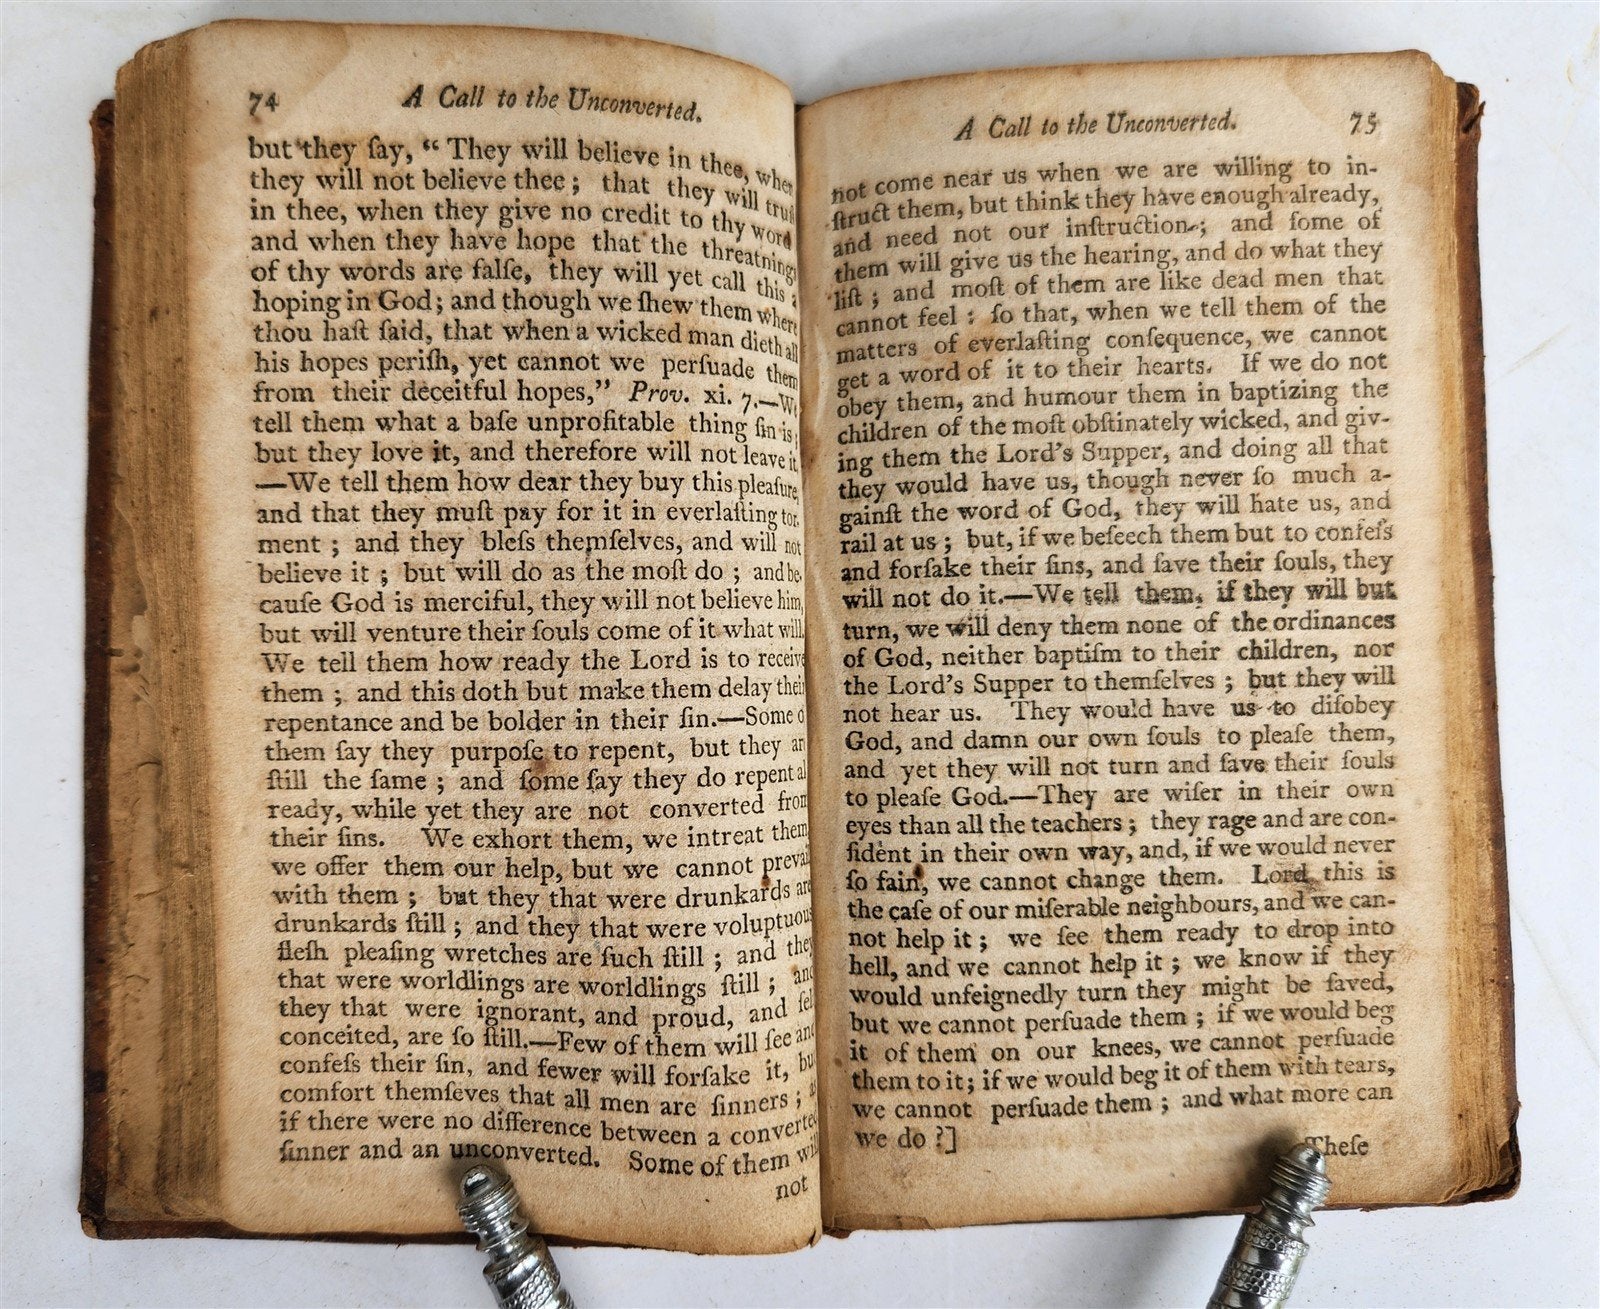 74 A Call to the Unconverted.
but they ſay, “ They will believe in thee, when
they will not believe thee ; that they will truſt
in thee, when they give no credit to thy word
and when they have hope that the threatnings
of thy words are falſe, they will yet call this a
hoping in God; and though we ſhew them where
thou haſt ſaid, that when a wicked man dieth all
his hopes periſh, yet cannot we perſuade them
from their deceitful hopes,” Prov. xi. 7.—We
tell them what a baſe unprofitable thing ſin is,
but they love it, and therefore will not leave it
—We tell them how dear they buy this pleaſure,
and that they muſt pay for it in everlaſting tor-
ment ; and they bleſs themſelves, and will not
believe it ; but will do as the moſt do ; and be-
cauſe God is merciful, they will not believe him,
but will venture their ſouls come of it what will.
We tell them how ready the Lord is to receive
them ; and this doth but make them delay their
repentance and be bolder in their ſin.—Some o
them ſay they purpoſe to repent, but they ar
ſtill the ſame ; and ſome ſay they do repent al
ready, while yet they are not converted from
their ſins. We exhort them, we intreat them
we offer them our help, but we cannot prevai
with them ; but they that were drunkards are
drunkards ſtill ; and they that were voluptuous
fleſh pleaſing wretches are ſuch ſtill ; and they
that were worldlings are worldlings ſtill ; and
they that were ignorant, and proud, and ſel
conceited, are ſo ſtill.—Few of them will ſee and
confeſs their ſin, and fewer will forſake it, bu
comfort themſeves that all men are ſinners ; as
if there were no difference between a converted
ſinner and an unconverted. Some of them will
not
A Call to the Unconverted. 75
not come near us when we are willing to in-
ſtruct them, but think they have enough already,
and need not our inſtruction ; and ſome of
them will give us the hearing, and do what they
liſt ; and moſt of them are like dead men that
cannot feel : ſo that, when we tell them of the
matters of everlaſting conſequence, we cannot
get a word of it to their hearts. If we do not
obey them, and humour them in baptizing the
children of the moſt obſtinately wicked, and giv-
ing them the Lord’s Supper, and doing all that
they would have us, though never ſo much a-
gainſt the word of God, they will hate us, and
rail at us ; but, if we beſeech them but to confeſs
and forſake their ſins, and ſave their ſouls, they
will not do it.—We tell them, if they will but
turn, we will deny them none of the ordinances
of God, neither baptiſm to their children, nor
the Lord’s Supper to themſelves ; but they will
not hear us. They would have us to diſobey
God, and damn our own ſouls to pleaſe them,
and yet they will not turn and ſave their ſouls
to pleaſe God.—They are wiſer in their own
eyes than all the teachers ; they rage and are con-
fident in their own way, and, if we would never
ſo fain, we cannot change them. Lord, this is
the caſe of our miſerable neighbours, and we can-
not help it ; we ſee them ready to drop into
hell, and we cannot help it ; we know if they
would unfeignedly turn they might be ſaved,
but we cannot perſuade them ; if we would beg
it of them on our knees, we cannot perſuade
them to it; if we would beg it of them with tears,
we cannot perſuade them ; and what more can
we do ?]
Theſe